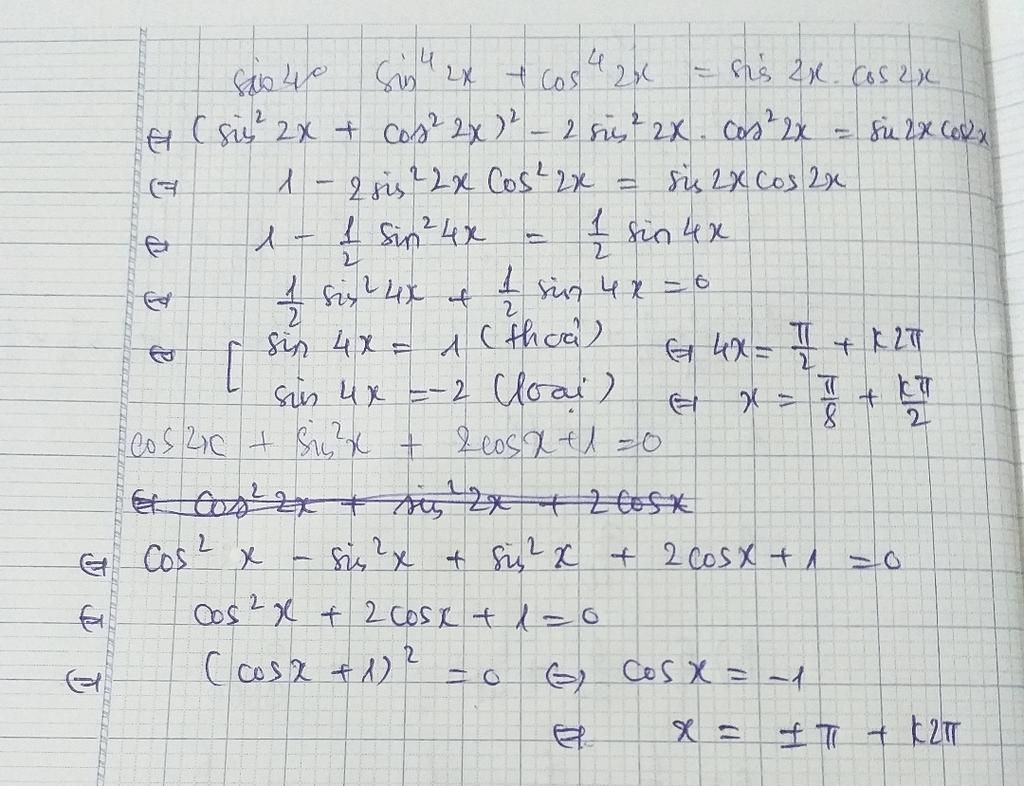 sin 4x sin⁴ 2x + cos⁴ 2x = sin 2x . cos 2x
⇔ (sin² 2x + cos² 2x)² - 2 sin² 2x . cos² 2x = sin 2x cos 2x
⇔ 1 - 2 sin² 2x cos² 2x = sin 2x cos 2x
⇔ 1 - 1/2 sin² 4x = 1/2 sin 4x
⇔ 1/2 sin² 4x + 1/2 sin 4x = 0
⇔ [ sin 4x = 1 (thoả) ⇔ 4x = π/2 + k2π
sin 4x = -2 (loại) ⇔ x = π/8 + kπ/2
cos 2x + sin² x + 2cos x + 1 = 0
⇔ cos² 2x + sin² 2x + 2 cos x
⇔ cos² x - sin² x + sin² x + 2 cos x + 1 = 0
⇔ cos² x + 2 cos x + 1 = 0
⇔ (cos x + 1)² = 0 ⇔ cos x = -1
⇔ x = ±π + k2π